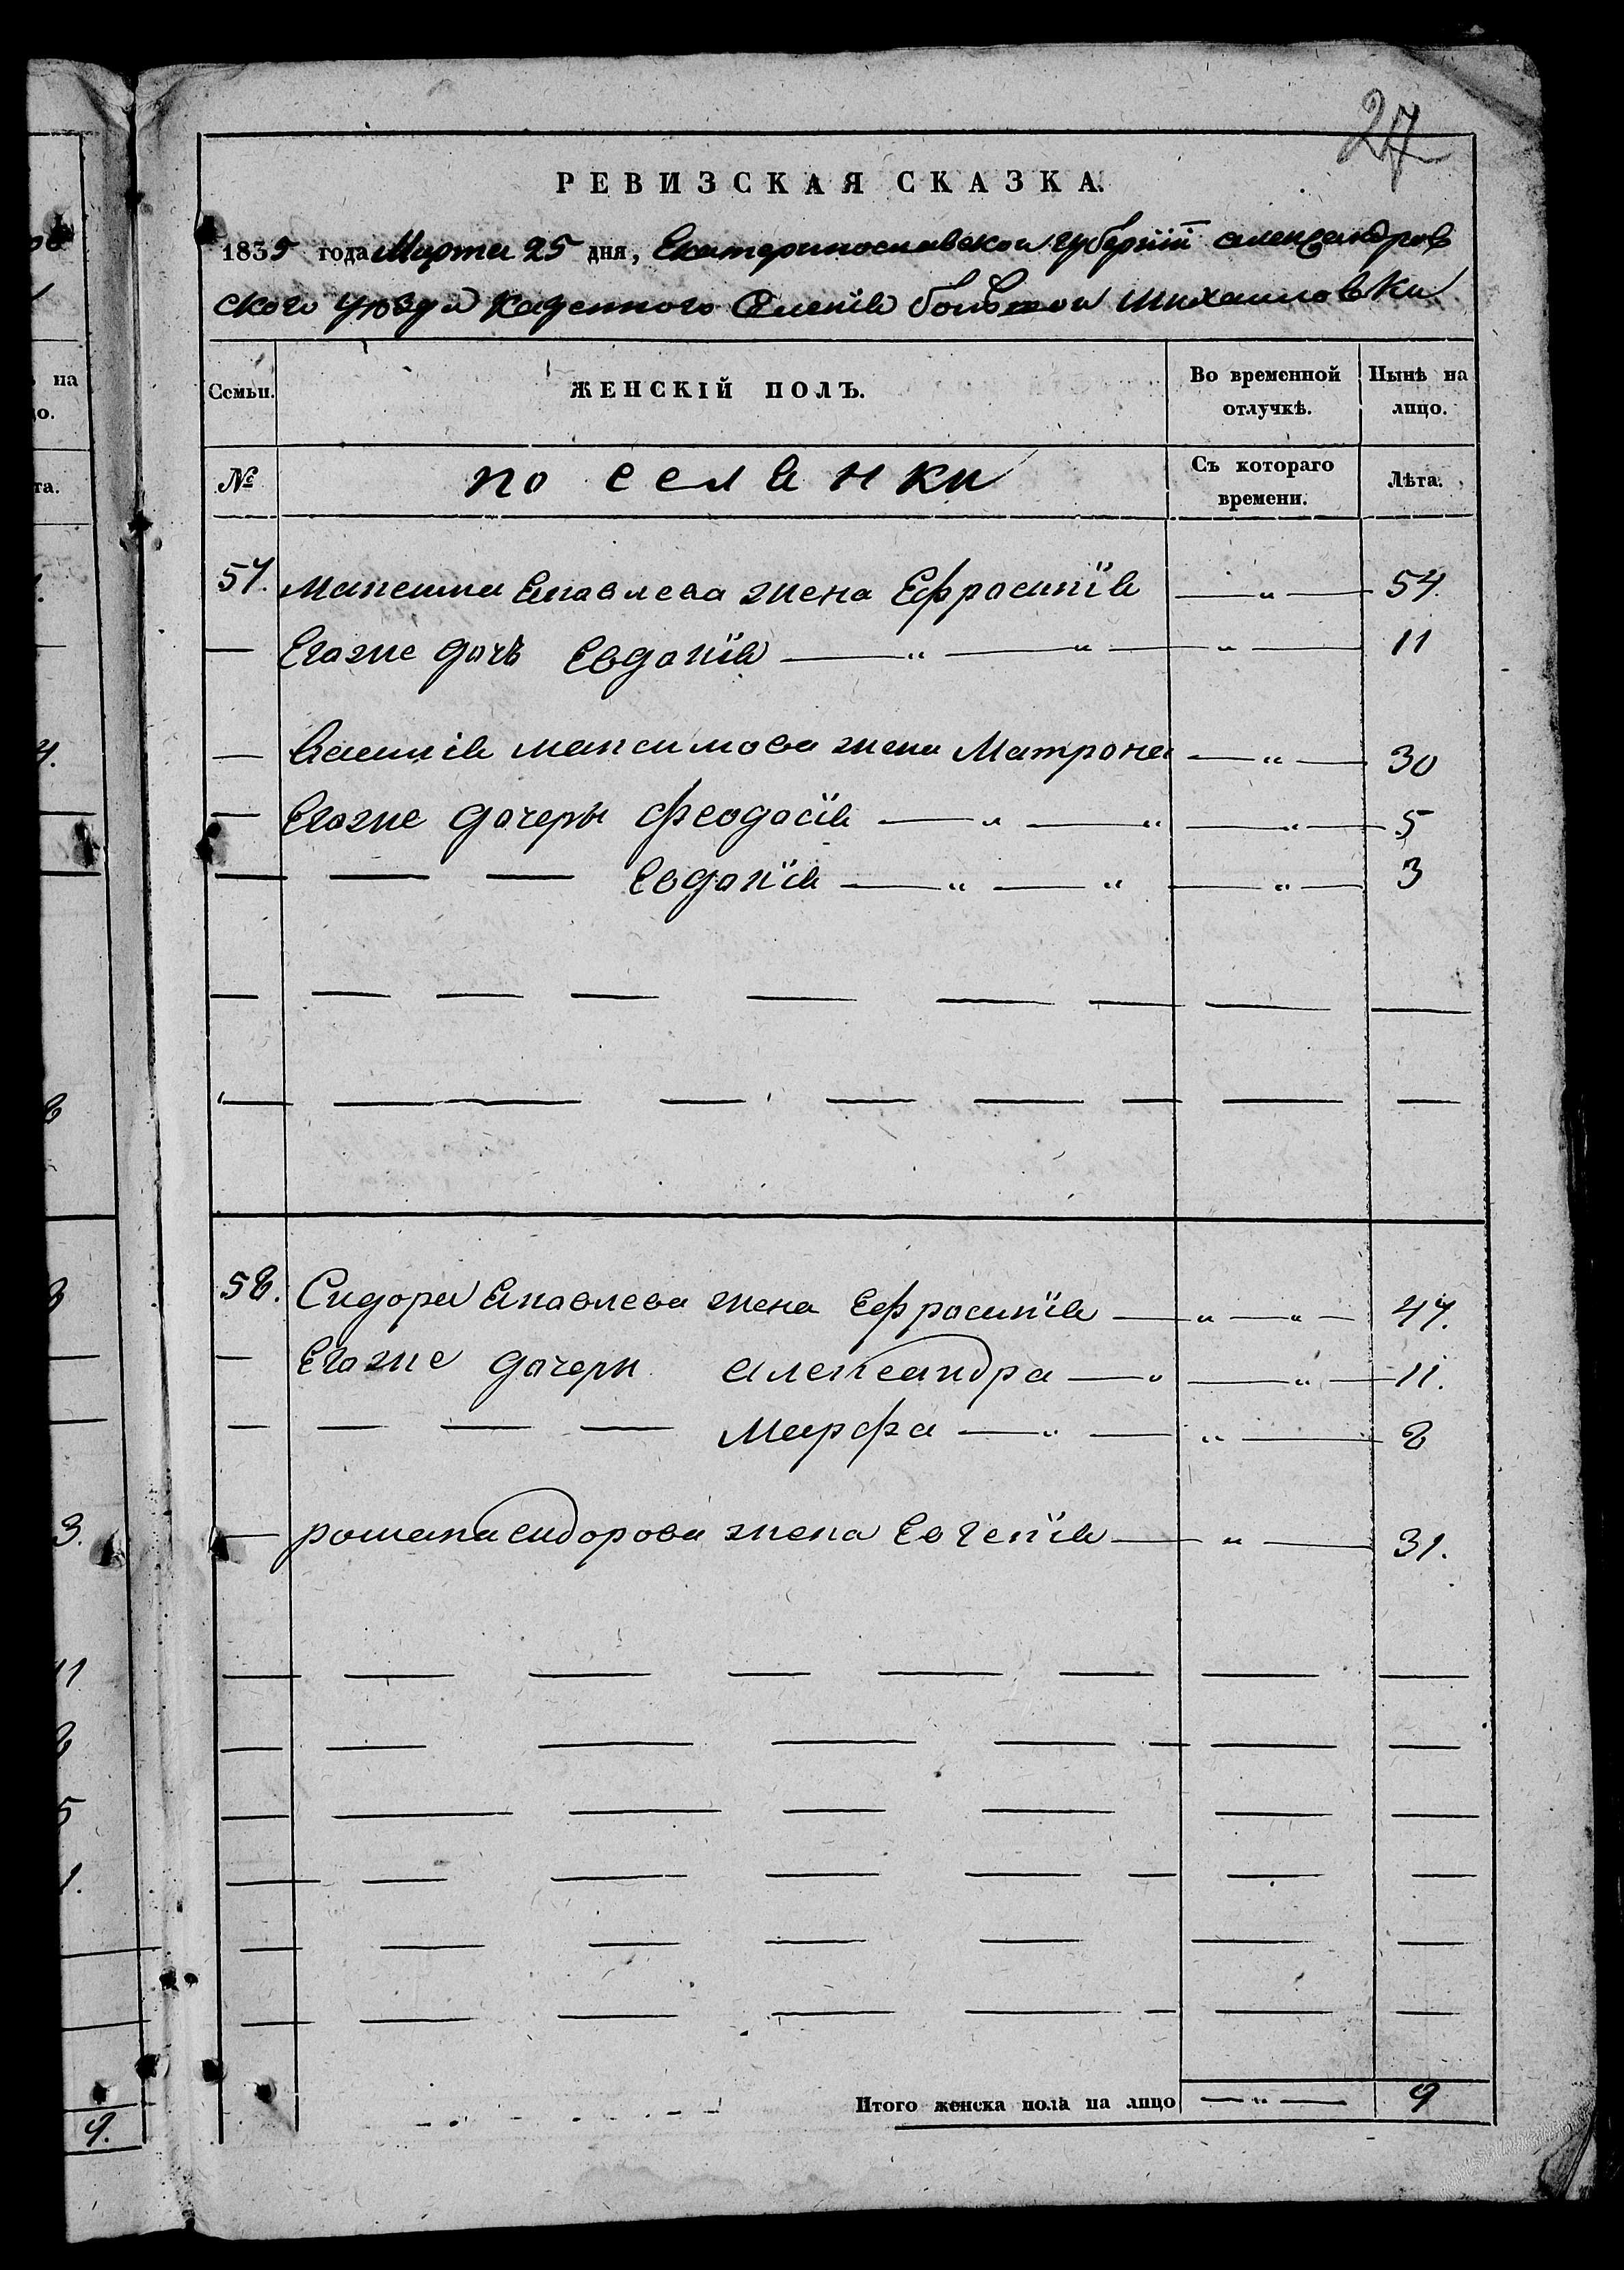 27
РЕВИЗСКАЯ СКАЗКА.
1835 года Марта 25 дня, Екатеринославской губернїи александров
ского уезда казенного Селенїя большой михаиловки
на
Семьи. ЖЕНСКІЙ ПОЛЪ. Во временной отлучкѣ. Нынѣ на лицо.
№ поселянки Съ котораго времени. Лѣта.
57. максима яковлева жена Ефросинїя — " — 54
— Егоже дочь Евдокїя — " — " — " — 11
— василїя максимова жена Матрона — " — 30
— Егоже дочеры феодосїя — " — " — " — 5
— — — Евдокїя — " — " — " — 3
58. Сидора яковлева жена Ефросинїя — " — " — 47.
— Егоже дочери александра — " — " — 11.
— — — — Марфа — " — " — 8
— романа сидорова жена Евгенїя — " — 31.
Итого женска пола на лицо — " — 9
9.